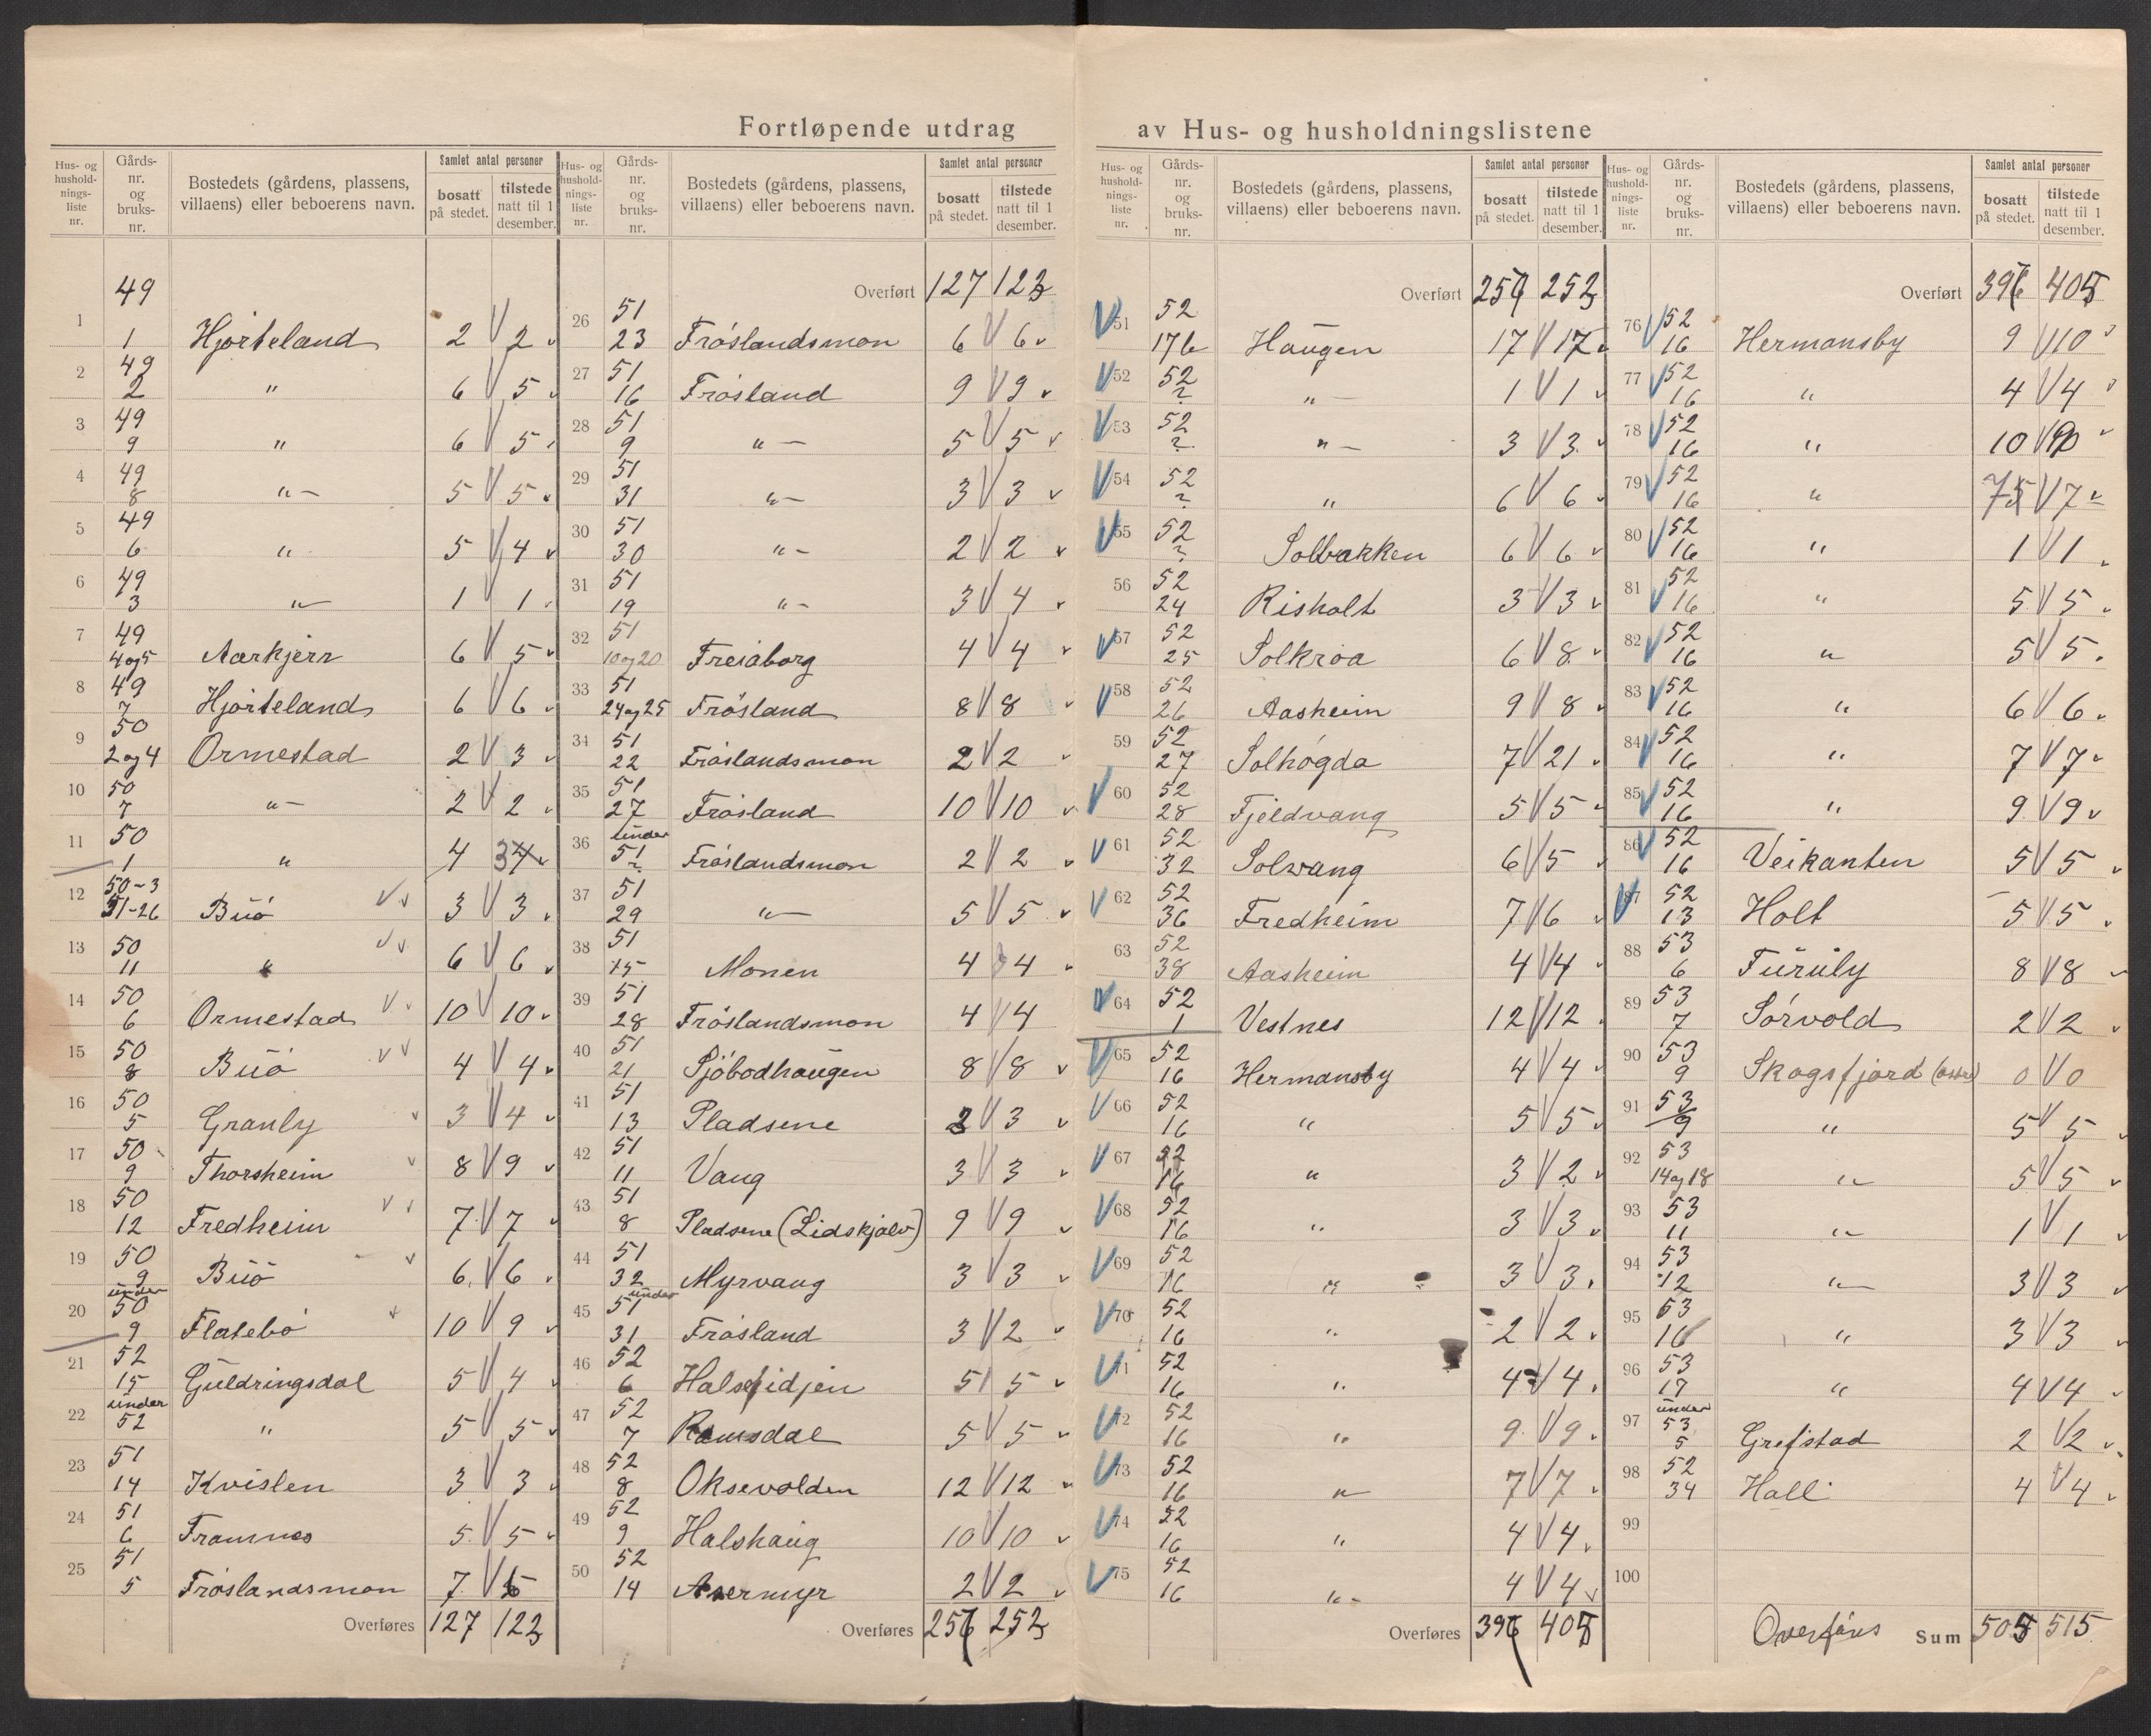 Fortløpende utdrag av Hus- og husholdningslistene
Hus- og husholdnings-liste nr. | Gårds-nr. og bruks-nr. | Bostedets (gårdens, plassens, villaens) eller beboerens navn. | Samlet antal personer | bosatt på stedet. | tilstede natt til 1 desember.
1 | 49 1 | Hjorteland | 2 | 2
2 | 49 2 | " | 6 | 5
3 | 49 9 | " | 6 | 5
4 | 49 8 | " - | 5 | 5
5 | 49 6 | " | 5 | 4
6 | 49 3 | " | 1 | 1
7 | 49 4 og 5 | Aarkjerr | 6 | 5
8 | 49 7 | Hjorteland | 6 | 6
9 | 50 2 og 4 | Ormestad | 2 | 3
10 | 50 7 | " - | 2 | 2
11 | 50 1 | " | 4 | 3
12 | 50-3 51-26 | Buö | 3 | 3
13 | 50 11 | " | 6 | 6
14 | 50 6 | Ormestad | 10 | 10
15 | 50 8 | Buö | 4 | 4
16 | 50 5 | Granly | 3 | 4
17 | 50 9 | Thorsheim | 8 | 9
18 | 50 12 | Fredheim | 7 | 7
19 | 50 9 | Buö | 6 | 6
20 | under 50 9 | Flatebö | 10 | 9
21 | 52 15 | Guldringsdal | 5 | 4
22 | under 52 | " | 5 | 5
23 | 51 14 | Kvislen | 3 | 3
24 | 51 6 | Framnes | 5 | 5
25 | 51 5 | Fröslandsmon | 7 | 6
Overføres | 127 | 123
Hus- og husholdnings-liste nr. | Gårds-nr. og bruks-nr. | Bostedets (gårdens, plassens, villaens) eller beboerens navn. | Samlet antal personer | bosatt på stedet. | tilstede natt til 1 desember.
Overført | 127 | 123
26 | 51 23 | Fröslandsmon | 6 | 6
27 | 51 16 | Frösland | 9 | 9
28 | 51 9 | " - | 5 | 5
29 | 51 31 | " - | 3 | 3
30 | 51 30 | " - | 2 | 2
31 | 51 19 | " - | 3 | 4
32 | 51 10 og 20 | Freiaborg | 4 | 4
33 | 51 24 og 25 | Frösland | 8 | 8
34 | 51 22 | Fröslandsmon | 2 | 2
35 | 51 27 | Frösland | 10 | 10
36 | under 51 ? | Fröslandsmon | 2 | 2
37 | 51 29 | " - | 5 | 5
38 | 51 15 | Monen | 4 | 4
39 | 51 28 | Fröslandsmon | 4 | 4
40 | 51 21 | Sjöbodhaugen | 8 | 8
41 | 51 13 | Pladsene | 3 | 3
42 | 51 11 | Vang | 3 | 3
43 | 51 8 | Pladsene (Lidskjalv) | 9 | 9
44 | 51 32 | Myrvang | 3 | 3
45 | under 51 31 | Frösland | 3 | 2
46 | 52 6 | Halsefidjen | 5 | 5
47 | 52 7 | Ramsdal | 5 | 5
48 | 52 8 | Oksevolden | 12 | 12
49 | 52 9 | Halshaug | 10 | 10
50 | 52 14 | Asermyr | 2 | 2
Overføres | 256 | 253
Hus- og husholdnings-liste nr. | Gårds-nr. og bruks-nr. | Bostedets (gårdens, plassens, villaens) eller beboerens navn. | Samlet antal personer | bosatt på stedet. | tilstede natt til 1 desember.
Overført | 256 | 253
51 | 52 176 | Haugen | 17 | 17
52 | 52 ? | " - | 1 | 1
53 | 52 ? | " - | 3 | 3
54 | 52 ? | " | 6 | 6
55 | 52 ? | Solbakken | 6 | 6
56 | 52 24 | Risholt | 3 | 3
57 | 52 25 | Solkroa | 6 | 8
58 | 52 26 | Aasheim | 9 | 8
59 | 52 27 | Solhögda | 7 | 21
60 | 52 28 | Fjeldvang | 5 | 5
61 | 52 32 | Solvang | 6 | 5
62 | 52 36 | Fredheim | 7 | 6
63 | 52 38 | Aasheim | 4 | 4
64 | 52 1 | Vestnes | 12 | 12
65 | 52 16 | Hermansby | 4 | 4
66 | 52 16 | " | 5 | 5
67 | 52 16 | " | 3 | 2
68 | 52 16 | " | 3 | 3
69 | 52 16 | " | 3 | 3
70 | 52 16 | " | 2 | 2
71 | 52 16 | " | 4 | 4
72 | 52 16 | " | 9 | 9
73 | 52 16 | " | 7 | 7
74 | 52 16 | " | 4 | 4
75 | 52 16 | " - | 4 | 4
Overføres | 396 | 405
Hus- og husholdnings-liste nr. | Gårds-nr. og bruks-nr. | Bostedets (gårdens, plassens, villaens) eller beboerens navn. | Samlet antal personer | bosatt på stedet. | tilstede natt til 1 desember.
Overført | 396 | 405
76 | 52 16 | Hermansby | 9 | 10
77 | 52 16 | " | 4 | 4
78 | 52 16 | " | 10 | 
79 | 52 16 | " | 7 | 7
80 | 52 16 | " | 1 | 1
81 | 52 16 | " | 5 | 5
82 | 52 16 | " | 5 | 5
83 | 52 16 | " | 6 | 6
84 | 52 16 | " | 7 | 7
85 | 52 16 | " | 9 | 9
86 | 52 16 | Veikanten | 5 | 5
87 | 52 13 | Holt | 5 | 5
88 | 53 6 | Furuly | 8 | 8
89 | 53 7 | Sörvold | 2 | 2
90 | 53 9 | Skogsfjord (östre) | 0 | 0
91 | 53 9 | " | 5 | 5
92 | 53 14 og 18 | " | 5 | 5
93 | 53 11 | " | 1 | 1
94 | 53 12 | " | 3 | 3
95 | 53 16 | " | 3 | 3
96 | 53 17 | " | 4 | 4
97 | under 53 5 | Grefstad | 2 | 2
98 | 52 34 | Hall | 4 | 4
99
100
Overföres Sum | 505 | 515